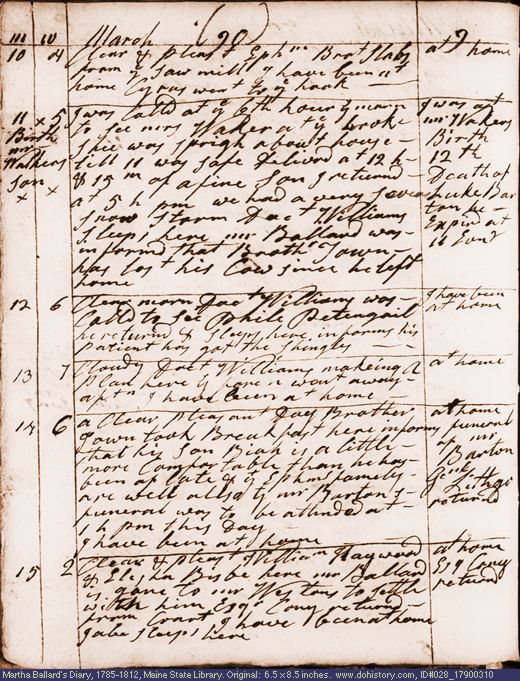 March (90)
111 10
10 4 Clear & pleast Ephm Brot Slabs at home
from ye saw mill I have been at
home Cyrus went to ye hook
11 x 5 I was Calld at ye 6th hour ye morn I was at
Birth to see mrs Waker at ye hook mr Wakers
mrs Shee was sprigh about house Birth
Wakers till it was safe Delivrd at 12 h 12th
Son & 15 m of a fine son I returnd Death of
x x at 5 h pm we had a very sever Luke Bar
snow storm Doct Williams ton he
sleeps here mr Ballard was Expird at
informd that Broth Town 11 Evng
has lost his Cow since he left
home
12 6 Clear morn Doct Williams was I have been
Calld to see Phile Petengail at home
he returnd & sleeps here informs his
patient has got the shingles
13 7 Cloudy Doct Williams makeing a at home
plan here I here n went away
aptn I have been at home
14 6 a Clear pleasant Day Brother at home
Town took Breakfast here informs funeral
that his son is a little of mr
more Comfortable than he has Barton
been of late & ye Ephm famely Genl
are well allso ye mr Barton's Lithgo
funeral was to be attinded at returnd
1 h pm this Day
I have been at home
15 2 Clear & pleast William Haywood at home
& Elisha Bisbe here mr Ballard Esq Cony
is gone to mr Westons to settle returnd
with him Esqr Cony returnd
from Court I have been at home
Gabe sleeps here
Martha Ballard's Diary, 1785-1812, Maine State Library. Original: 6.5 x 8.5 inches. www.dohistory.com, ID#028_17900310